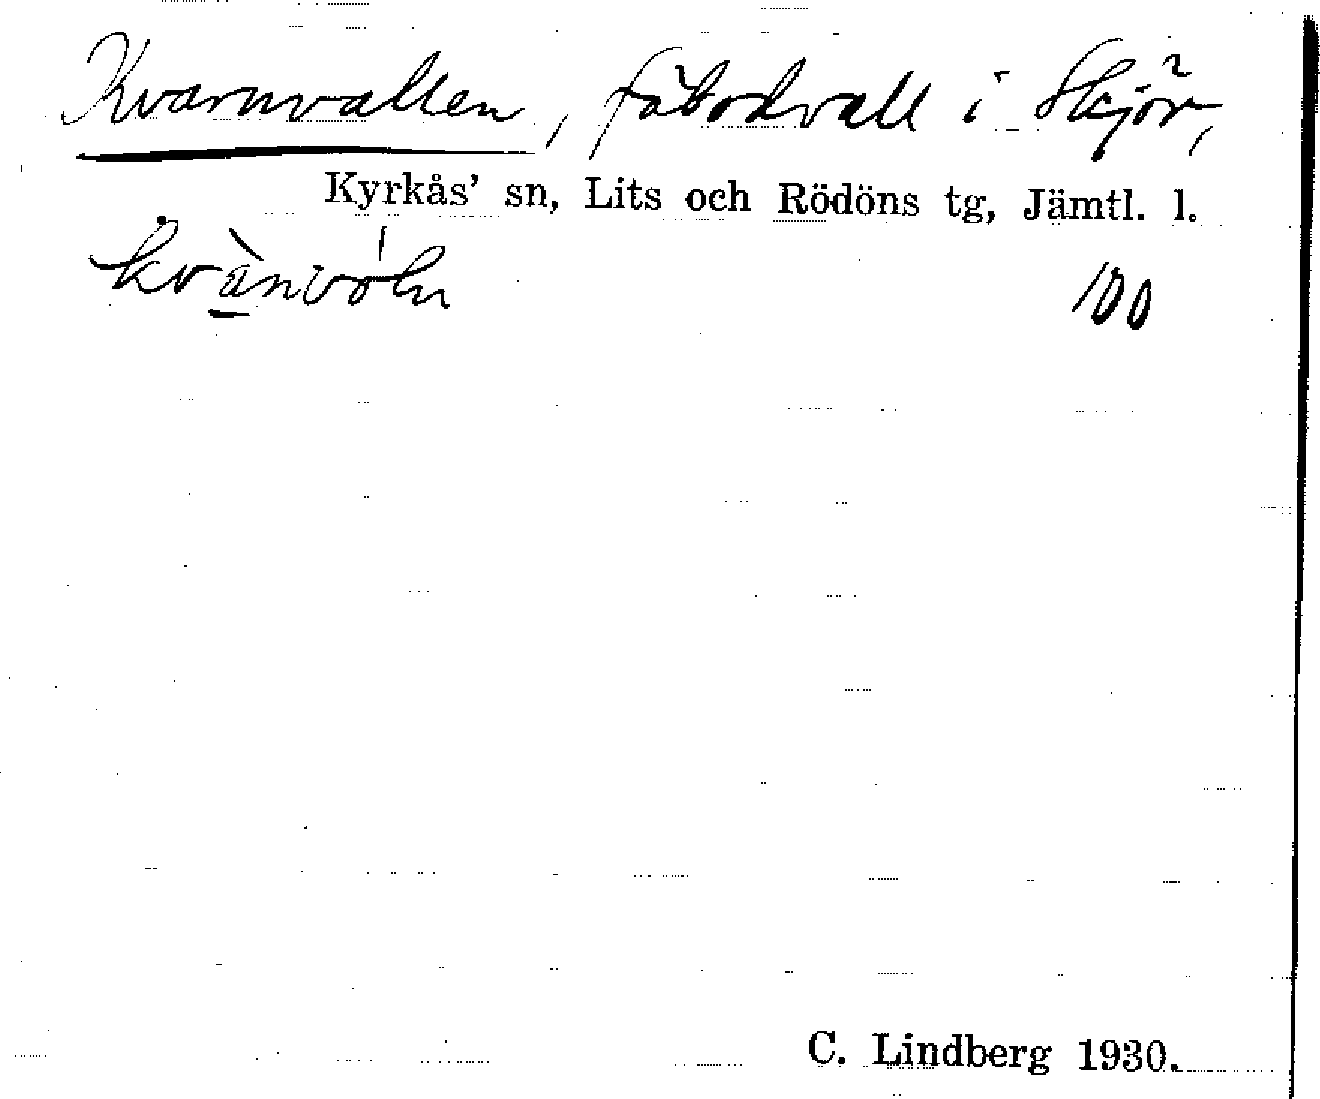 Kvarnvallen, fäbodvall i Skjör,
Kyrkås' sn, Lits och Rödöns tg, Jämtl. l.
100
C. Lindberg 1930.